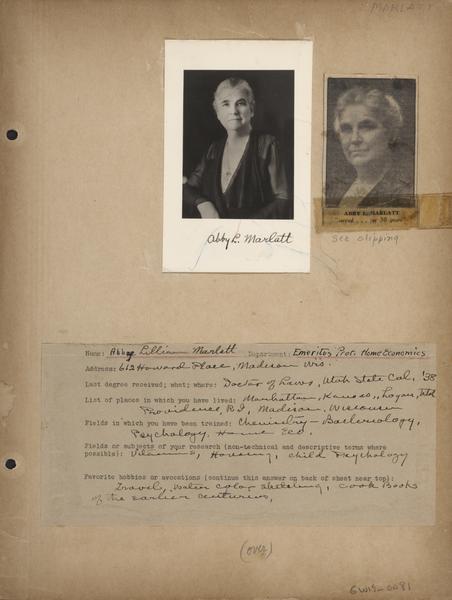 MARLATT
Abby L. Marlatt
ABBY L. MARLATT
See clipping
Name: Abby Lillian Marlatt Department: Emeritus Prof. Home Economics
Address: 612 Howard Place, Madison Wis.
Last degree received; what; where: Doctor of Laws, Utah State Col, '38
List of places in which you have lived: Manhattan, Kansas, Logan, Utah
Providence, R.I., Madison, Wisconsin
Fields in which you have been trained: Chemistry - Bacteriology,
Psychology, Home Eco,
Fields or subjects of your research (non-technical and descriptive terms where
possible): Vitamins, Housing, Child Psychology
Favorite hobbies or avocations (continue this answer on back of sheet near top):
Travel, Water color sketching, Cook Books
of the earlier centuries,
(over)
GW15-0081